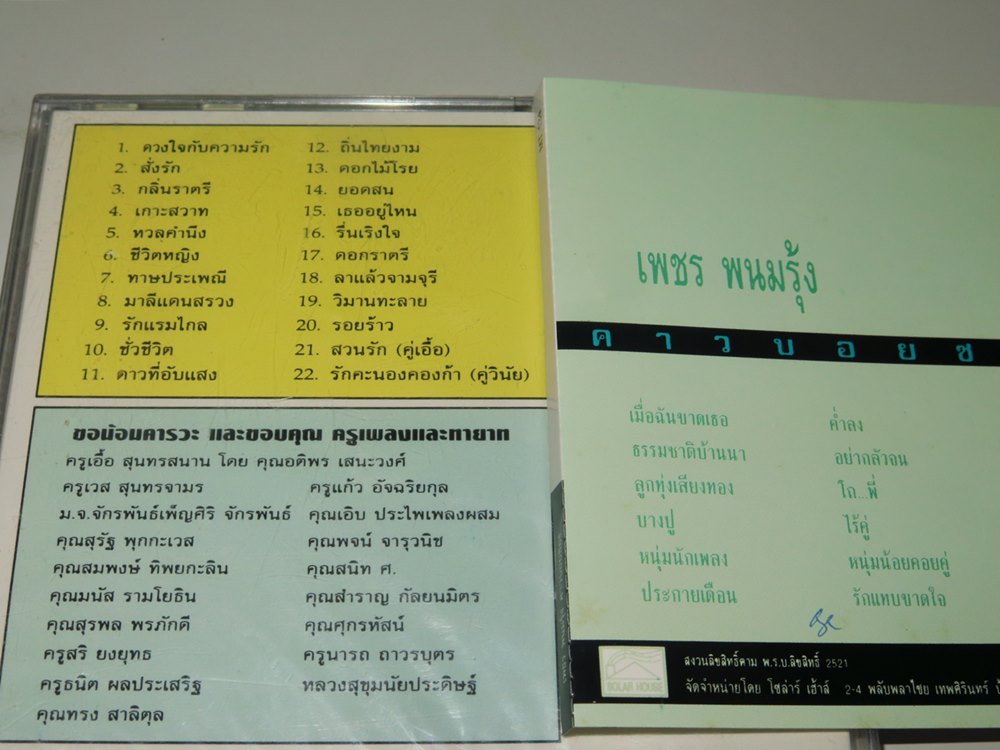 1. ดวงใจกับความรัก
2. สั่งรัก
3. กลิ่นราตรี
4. เกาะสวาท
5. หวลคำนึง
6. ชีวิตหญิง
7. ทาษประเพณี
8. มาลีแดนสรวง
9. รักแรมไกล
10. ชั่วชีวิต
11. ดาวที่อับแสง
12. ถิ่นไทยงาม
13. ดอกไม้โรย
14. ยอดสน
15. เธออยู่ไหน
16. รื่นเริงใจ
17. ดอกราตรี
18. ลาแล้วจามจุรี
19. วิมานทะลาย
20. รอยร้าว
21. สวนรัก (คู่เอื้อ)
22. รักคะนองคองก้า (คู่วินัย)
ขอน้อมคารวะ และขอบคุณ ครูเพลงและทายาท
ครูเอื้อ สุนทรสนาน โดย คุณอติพร เสนะวงศ์
ครูเวส สุนทรจามร
ครูแก้ว อัจฉริยกุล
ม.จ.จักรพันธ์เพ็ญศิริ จักรพันธ์
คุณเอิบ ประไพเพลงผสม
คุณสุรัฐ พุกกะเวส
คุณพจน์ จารุวนิช
คุณสมพงษ์ ทิพยกะลิน
คุณสนิท ศ.
คุณมนัส รามโยธิน
คุณสำราญ กัลยนมิตร
คุณสุรพล พรภักดี
คุณศุกรทัสน์
ครูสริ ยงยุทธ
ครูนารถ ถาวรบุตร
ครูธนิต ผลประเสริฐ
หลวงสุขุมนัยประดิษฐ์
คุณทรง สาลิตุล
เพชร พนมรุ้ง
คาวบอยช
เมื่อฉันขาดเธอ
ธรรมชาติบ้านนา
ลูกทุ่งเสียงทอง
บางปู
หนุ่มนักเพลง
ประกายเดือน
ค่ำลง
อย่ากลัวจน
โถ...พี่
ไร้คู่
หนุ่มน้อยคอยคู่
รักแทบขาดใจ
SOLAR HOUSE
สงวนลิขสิทธิ์ตาม พ.ร.บ.ลิขสิทธิ์ 2521
จัดจำหน่ายโดย โซล่าร์ เฮ้าส์ 2-4 พลับพลาไชย เทพศิรินทร์